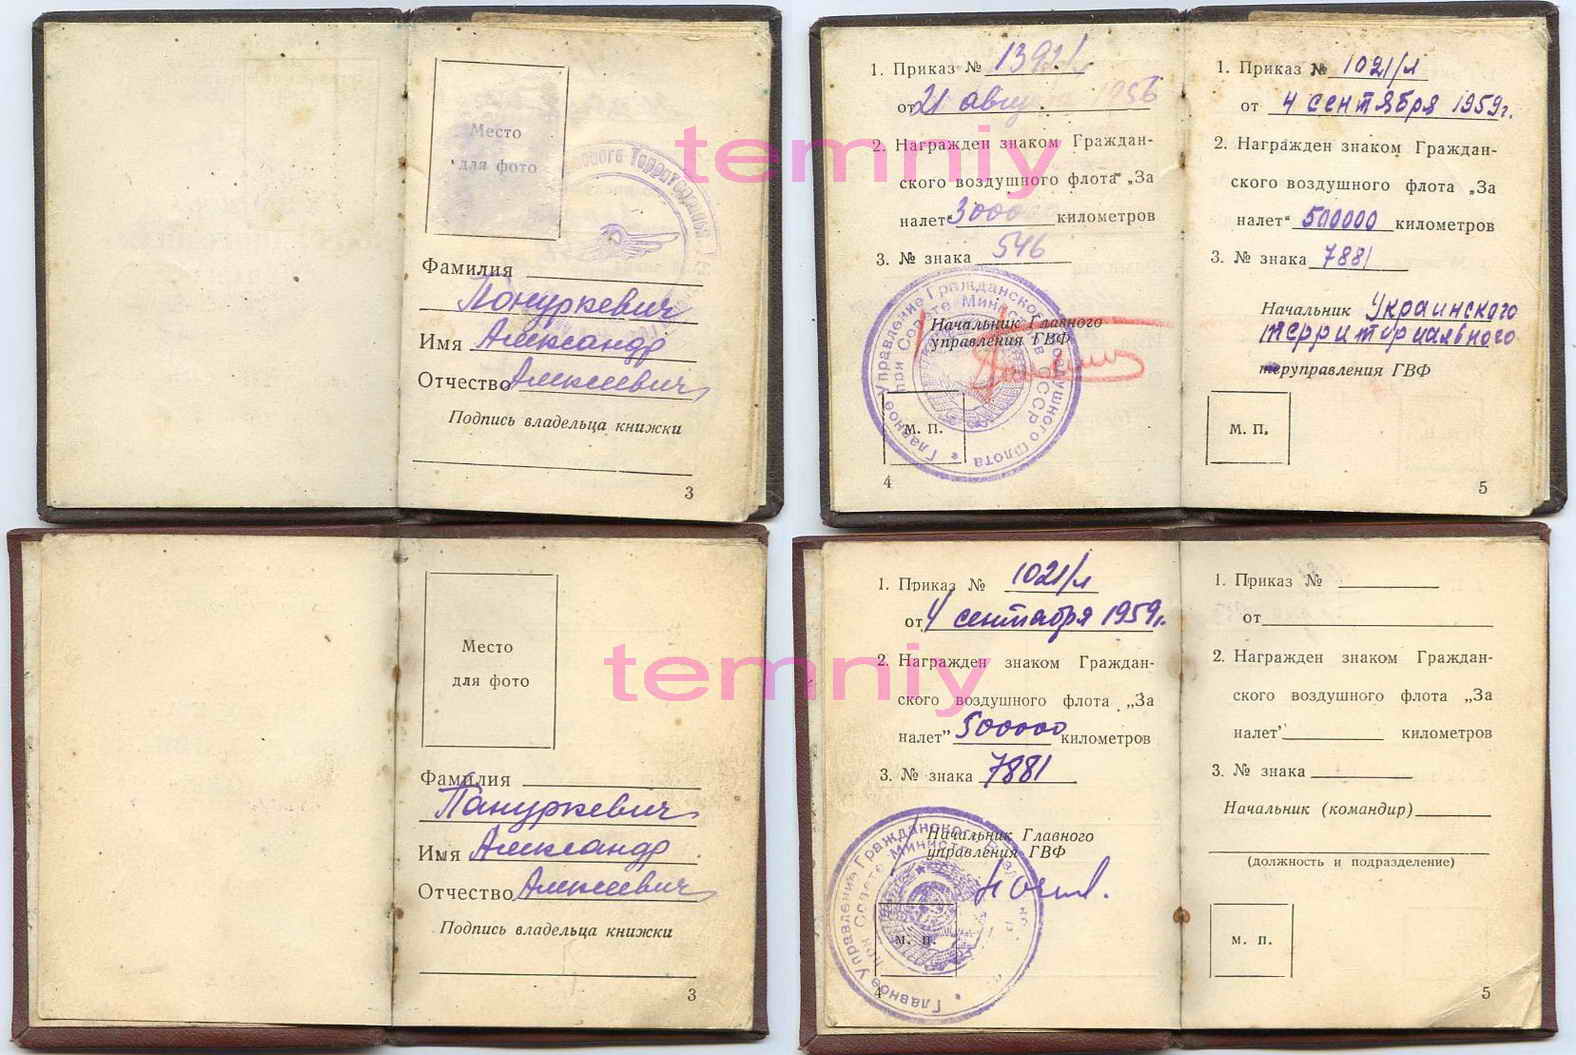 Место
для фото
Фамилия
Пануркевич
Имя Александр
Отчество Алексеевич
Подпись владельца книжки
3
1. Приказ № 1392/л
от 21 августа 1956
2. Награжден знаком Граждан-
ского воздушного флота „За
налет“ 300000 километров
3. № знака 546
Начальник Главного
управления ГВФ
Главное Управление Гражданского Воздушного Флота
при Совете Министров СССР
М. П.
4
1. Приказ № 1021/л
от 4 сентября 1959г.
2. Награжден знаком Граждан-
ского воздушного флота „За
налет“ 500000 километров
3. № знака 7881
Начальник Украинского
территориального
теруправления ГВФ
М. П.
5
temniy
Место
для фото
Фамилия
Пануркевич
Имя Александр
Отчество Алексеевич
Подпись владельца книжки
3
1. Приказ № 1021/л
от 4 сентября 1959г.
2. Награжден знаком Граждан-
ского воздушного флота „За
налет” 500000 километров
3. № знака 7881
Начальник Главного
управления ГВФ
Главное Управление Гражданского
при Совете Министров
М. П.
4
1. Приказ №
от
2. Награжден знаком Граждан-
ского воздушного флота „За
налет” километров
3. № знака
Начальник (командир)
(должность и подразделение)
М. П.
5
temniy